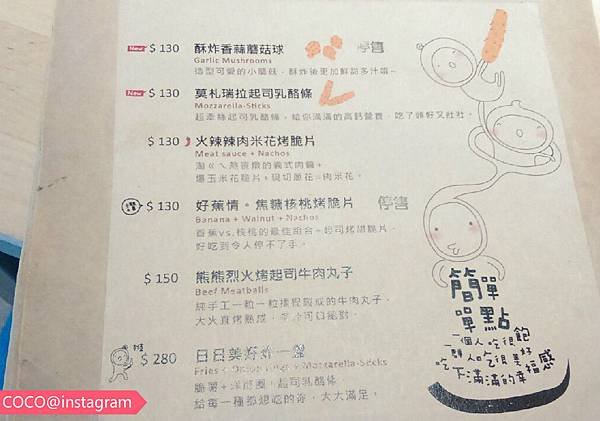 New $130 酥炸香蒜蘑菇球 停售
Garlic Mushrooms
造型可愛的小蘑菇，酥炸後更加鮮甜多汁唷~
New $130 莫札瑞拉起司乳酪條
Mozzarella-Sticks
超牽絲起司乳酪條，給你滿滿的高鈣營養，吃了頭好又壯壯。
$130 火辣辣肉米花烤脆片
Meat sauce + Nachos
爆玉米花脆片+現切蔥花=肉米花。
$130 好蕉情。焦糖核桃烤脆片 停售
Banana + Walnut + Nachos
香蕉vs.核桃的最佳組合+起司烤甜脆片，
好吃到令人停不了手。
$150 熊熊烈火烤起司牛肉丸子
Beef Meatballs
純手工一粒一粒揉捏製成的牛肉丸子，
大火直烤熟成，
$280 日日美好炸一盤
Fries + Mozzarella-Sticks
脆薯+洋蔥圈+起司乳酪條
給每一種都想吃的你，大大滿足。
簡單
單點
一個人吃很飽
一群人吃很美好
吃下滿滿的幸福感
COCO@instagram